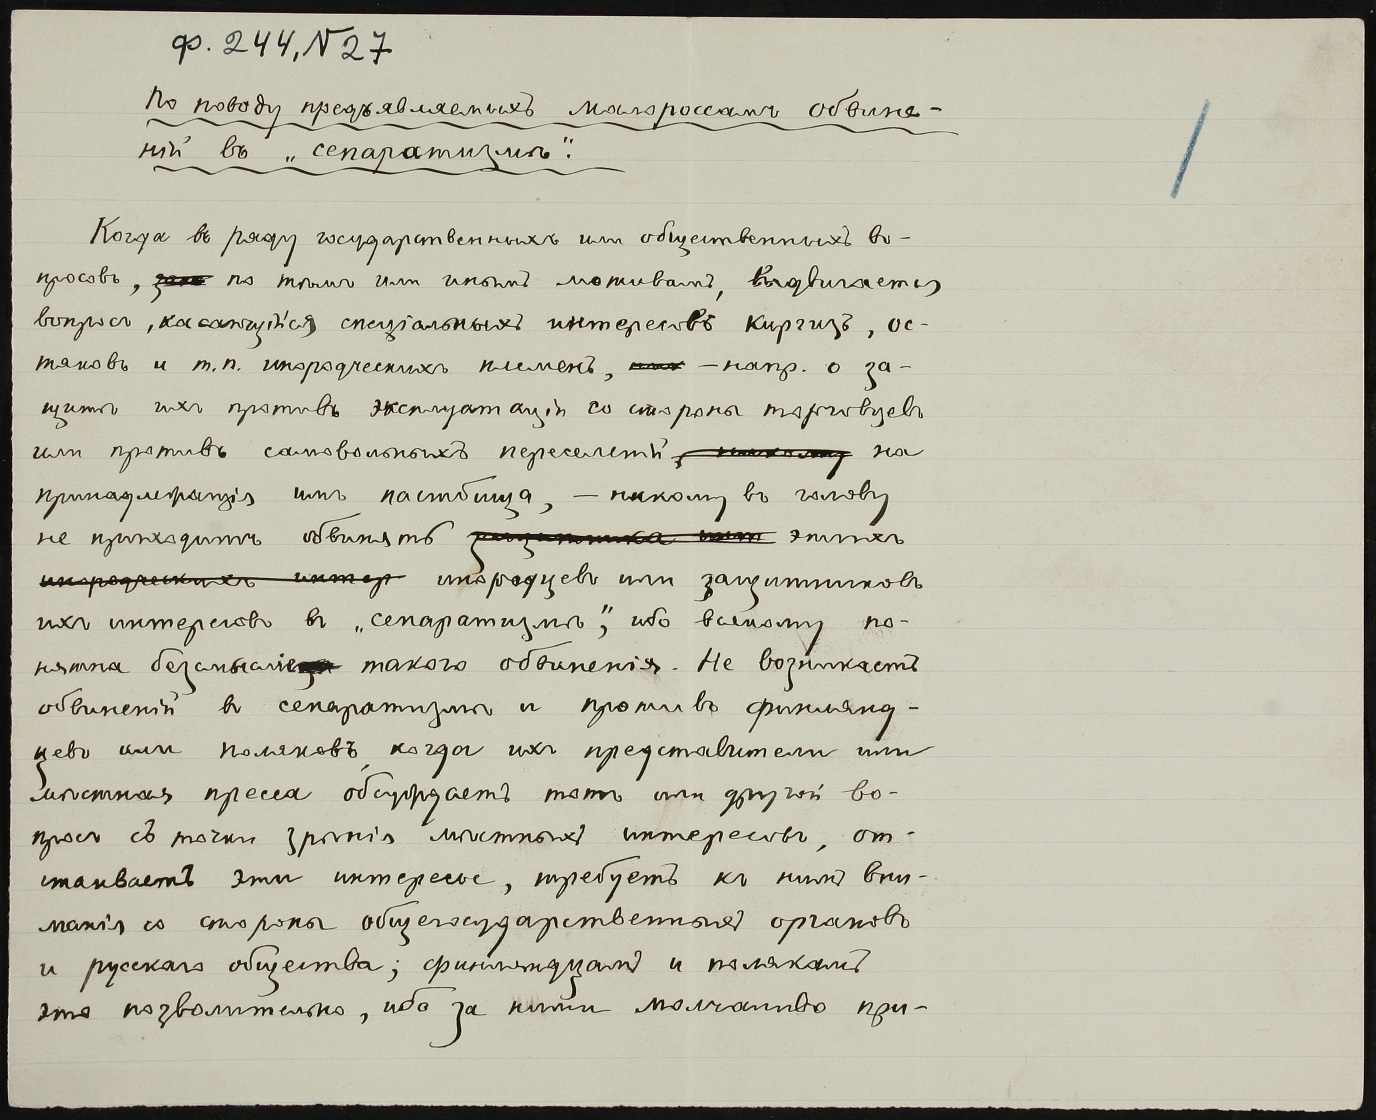 ф. 244, N 27
По поводу предъявляемыхъ малороссамъ обвине-
ній въ „сепаратизмѣ".
Когда въ ряду государственныхъ или общественныхъ во-
просовъ, по тѣмъ или инымъ мотивамъ, выдвигается
вопросъ, касающійся спеціальныхъ интересовъ киргизъ, ос-
тяковъ и т.п. инородческихъ племенъ, – напр. о за-
щитѣ ихъ противъ эксплуатаціи со стороны торговцевъ
или противъ самовольныхъ переселеній, никому на
принадлежащія имъ пастбища, – никому въ голову
не приходитъ обвинять защитника этихъ
инородческихъ интер инородцевъ или защитниковъ
ихъ интересовъ въ „сепаратизмѣ", ибо всякому по-
нятна безсмысліе такого обвиненія. Не возникаетъ
обвиненій въ сепаратизмѣ и противъ финлянд-
цевъ или поляковъ, когда ихъ представители или
мѣстная пресса обсуждаетъ тотъ или другой во-
просъ съ точки зрѣнія мѣстныхъ интересовъ, от-
стаиваетъ эти интересы, требуетъ къ нимъ вни-
манія со стороны общегосударственныхъ органовъ
и русскаго общества; финляндцамъ и полякамъ
это позволительно, ибо за ними молчаливо при-
/